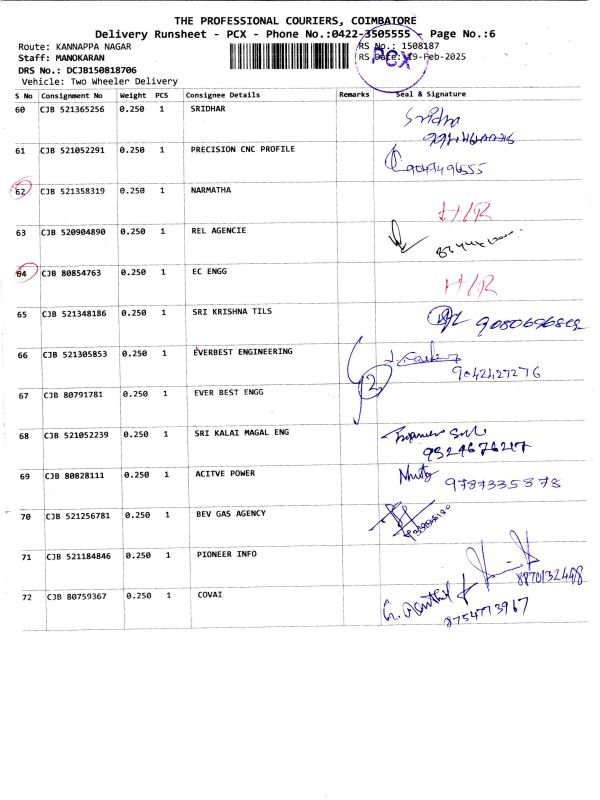 THE PROFESSIONAL COURIERS, COIMBATORE
Delivery Runsheet - PCX - Phone No.:0422-3505555 - Page No.:6
Route: KANNAPPA NAGAR
RS No.: 1508187
Staff: MANOKARAN
RS Date: 19-Feb-2025
DRS No.: DCJB150818706
PCX
Vehicle: Two Wheeler Delivery
S No Consignment No Weight PCS Consignee Details Remarks Seal & Signature
60 CJB 521365256 0.250 1 SRIDHAR Sridha
61 CJB 521052291 0.250 1 PRECISION CNC PROFILE 9047496555
62 CJB 521358319 0.250 1 NARMATHA H/R
63 CJB 520904890 0.250 1 REL AGENCIE
64 CJB 80854763 0.250 1 EC ENGG H/R
65 CJB 521348186 0.250 1 SRI KRISHNA TILS
66 CJB 521305853 0.250 1 EVERBEST ENGINEERING 2 9042427276
67 CJB 80791781 0.250 1 EVER BEST ENGG
68 CJB 521052239 0.250 1 SRI KALAI MAGAL ENG
69 CJB 80828111 0.250 1 ACITVE POWER 9787335878
70 CJB 521256781 0.250 1 BEV GAS AGENCY
71 CJB 521184846 0.250 1 PIONEER INFO 8870132448
72 CJB 80759367 0.250 1 COVAI 8754773967